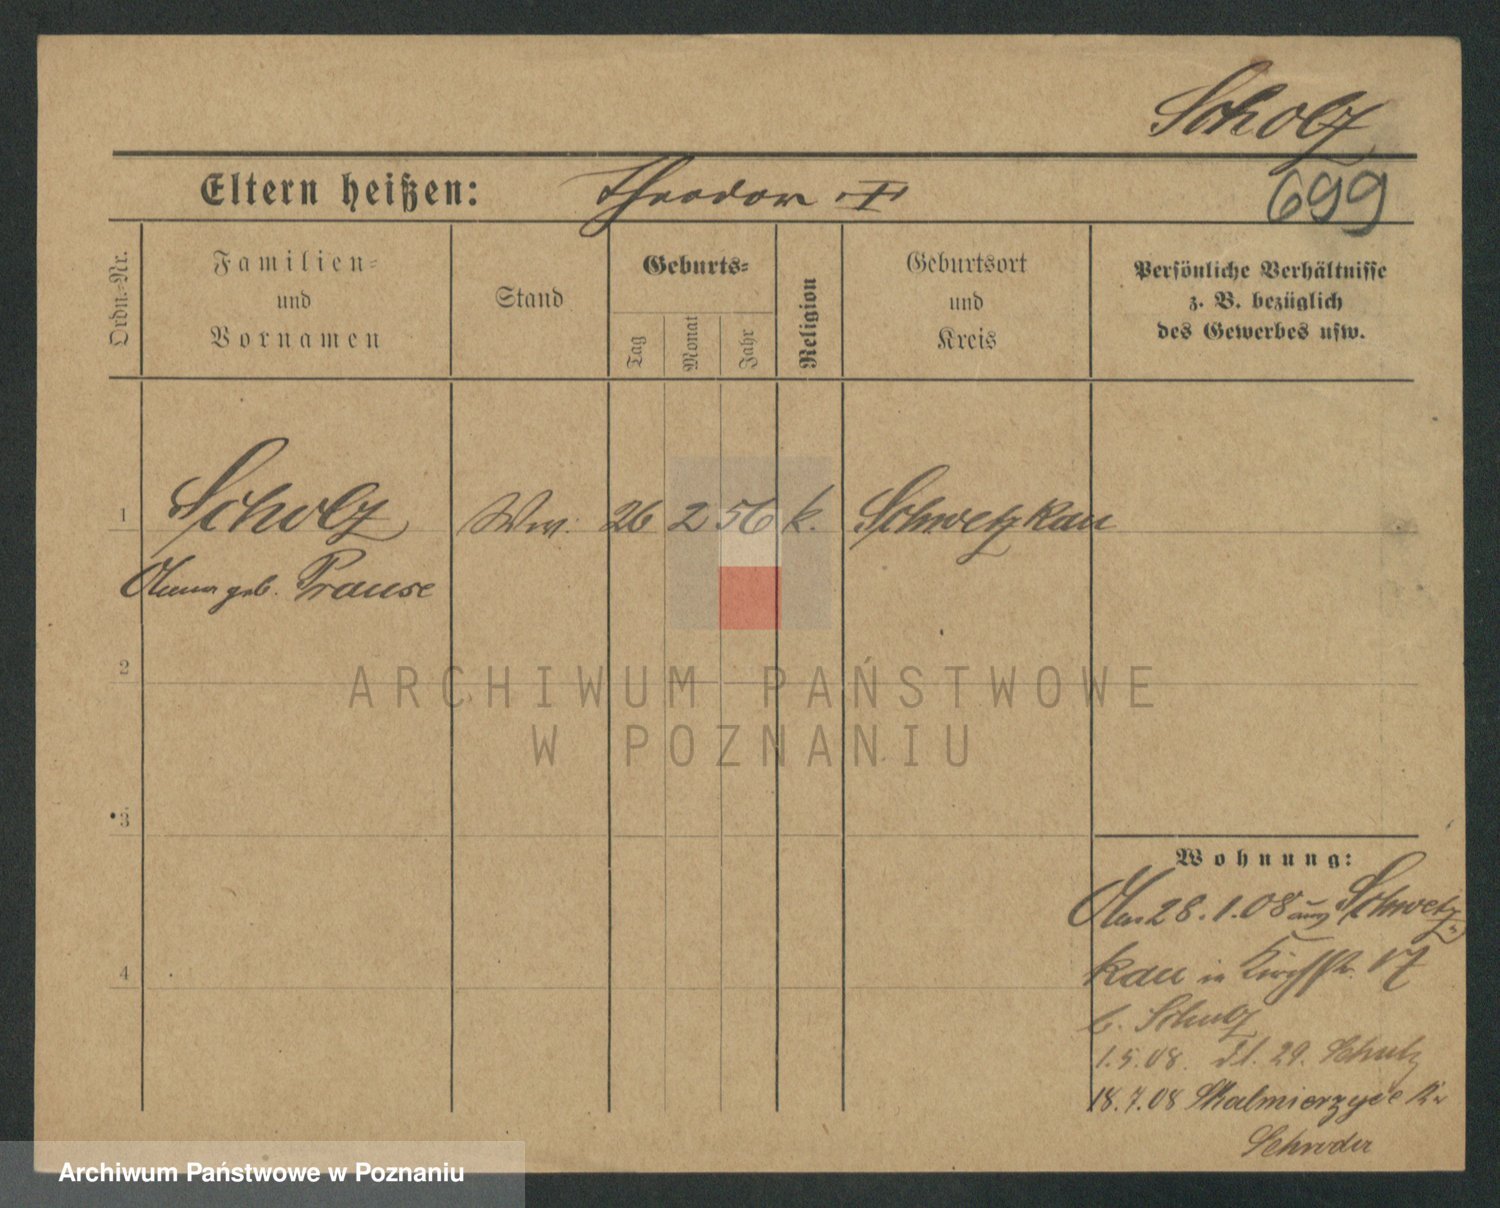 Scholz
Eltern heißen: Theodor
699
Ordn.-Nr.
Familien-
und
Vornamen
Stand
Geburts-
Tag
Monat
Jahr
Religion
Geburtsort
und
Kreis
Persönliche Verhältnisse
z. B. bezüglich
des Gewerbes usw.
1 Scholz Ww. 26 2 56 k. Schwetzkau
geb. Prause
2
ARCHIWUM PAŃSTWOWE
W POZNANIU
3
Wohnung:
28.1.08 aus Schwetz-
4
kau in Kirchstr. 17
b. Schulz
1.5.08. 29. Schulz
18.7.08 Skalmierzyce
Schroder
Archiwum Państwowe w Poznaniu